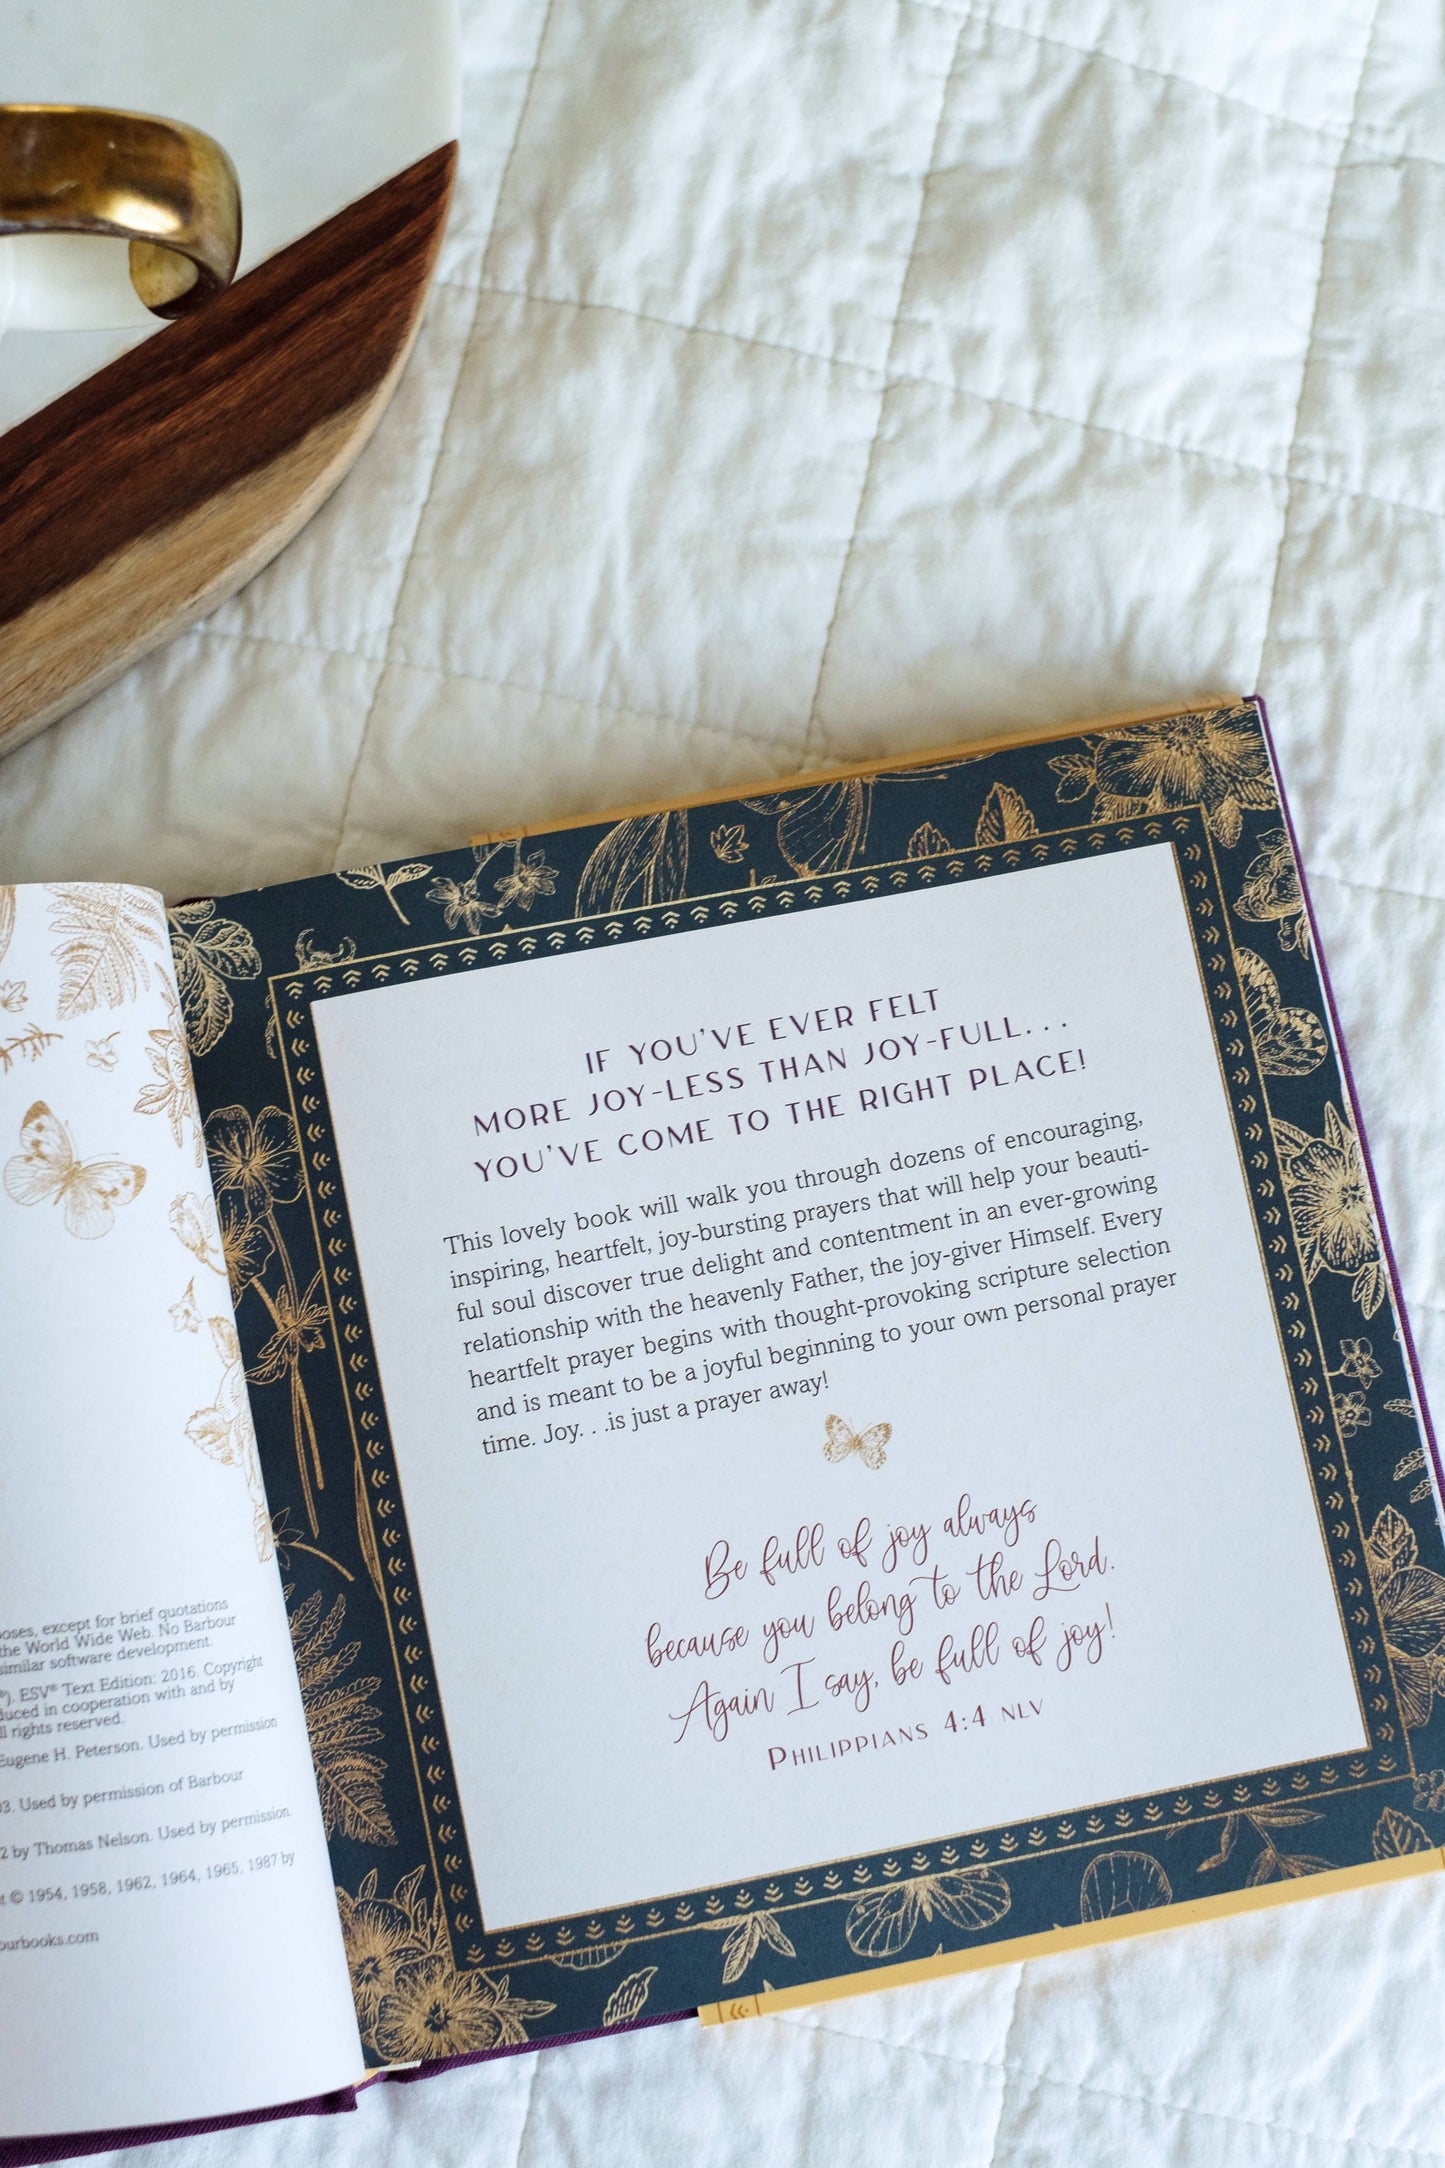 oses, except for brief quotations
the World Wide Web. No Barbour
similar software development.
®). ESV® Text Edition: 2016. Copyright
duced in cooperation with and by
ll rights reserved.
Eugene H. Peterson. Used by permission
03. Used by permission of Barbour
2 by Thomas Nelson. Used by permission.
t © 1954, 1958, 1962, 1964, 1965, 1987 by
ourbooks.com
IF YOU'VE EVER FELT
MORE JOY-LESS THAN JOY-FULL. . .
YOU'VE COME TO THE RIGHT PLACE!
This lovely book will walk you through dozens of encouraging,
inspiring, heartfelt, joy-bursting prayers that will help your beauti-
ful soul discover true delight and contentment in an ever-growing
relationship with the heavenly Father, the joy-giver Himself. Every
heartfelt prayer begins with thought-provoking scripture selection
and is meant to be a joyful beginning to your own personal prayer
time. Joy. . .is just a prayer away!
Be full of joy always
because you belong to the Lord.
Again I say, be full of joy!
PHILIPPIANS 4:4 NLV